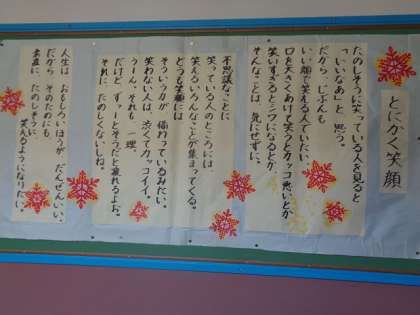 とにかく笑顔
たのしそうに笑っている人を見ると
「いいなあ」と 思う。
だから、じぶんも
いい顔で笑える人でいたい。
口を大きくあけて笑うとカッコ悪いとか
笑いすぎるとシワになるとか、
そんなことは 気にせずに。
不思議なことに
笑っている人のところには、
笑えるいろんなことが集まってくる。
どうも笑顔には
そういう力が 備わっているみたい。
笑わない人は、渋くてカッコイイ。
うーん、それも 一理
だけど、ずーっとそうだと疲れるよお。
それに、たのしくないしね。
人生は おもしろいほうが だんぜんいい、
だから、そのためにも、
素直に、たのしそうに、
笑えるようになりたい。